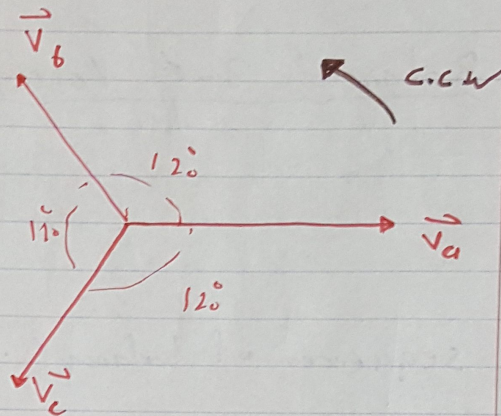 V⃗b
C.C.W
120°
120°
V⃗a
120°
V⃗c